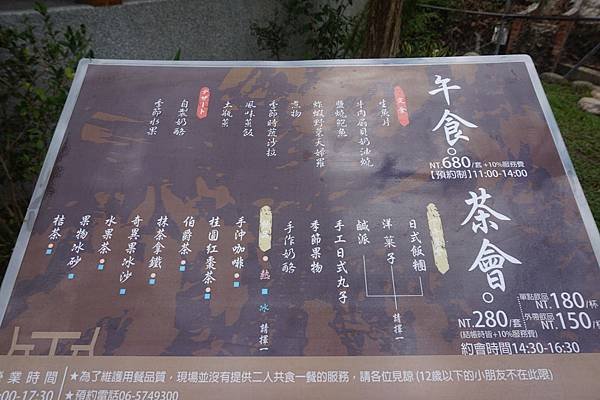 午食。
NT.680/套+10%服務費
【預約制】11:00-14:00
主食
生魚片
牛肉扇貝奶油燒
鹽燒鮑魚
炸蝦野菜天婦羅
煮物
季節時蔬沙拉
風味蒸飯
土瓶蒸
デザート
自製奶酪
季節水果
茶會。
單點飲品 NT.180/杯
外帶飲品 NT.150/杯
NT.280/套
(結帳時皆+10%服務費)
約會時間14:30-16:30
日式飯糰
洋菓子
鹹派
請擇一
手工日式丸子
季節果物
手作奶酪
熱 冰 請擇一
手沖咖啡
桂圓紅棗茶
伯爵茶
抹茶拿鐵
奇異果冰沙
水果茶
果物冰砂
桔茶
營業時間
00-17:30
★為了維護用餐品質,現場並沒有提供二人共食一餐的服務,請各位見諒(12歲以下的小朋友不在此限)
★預約電話06-5749300